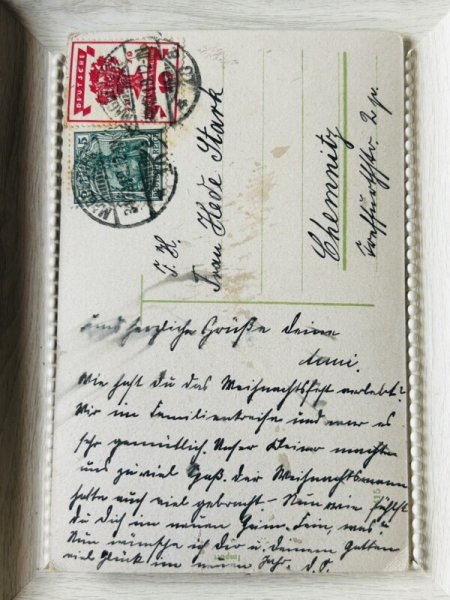 DEUTSCHE
10
15
T. H.
Frau Hede Stark
Chemnitz
str. 2 
und herzliche Grüße deine
Wie hast Du das Weihnachtsfest verlebt?
Wir im Familienkreise und war es
sehr gemütlich. Unser Kleiner machte
uns zu viel Spaß. Der Weihnachtsmann
hatte auch viel gebracht. - Nun wie fühlst
Du Dich im neuen Heim. Fein, was?
Nun wünsche ich Dir u. Deinem Gatten
viel Glück im neuen Jahr. D. O.